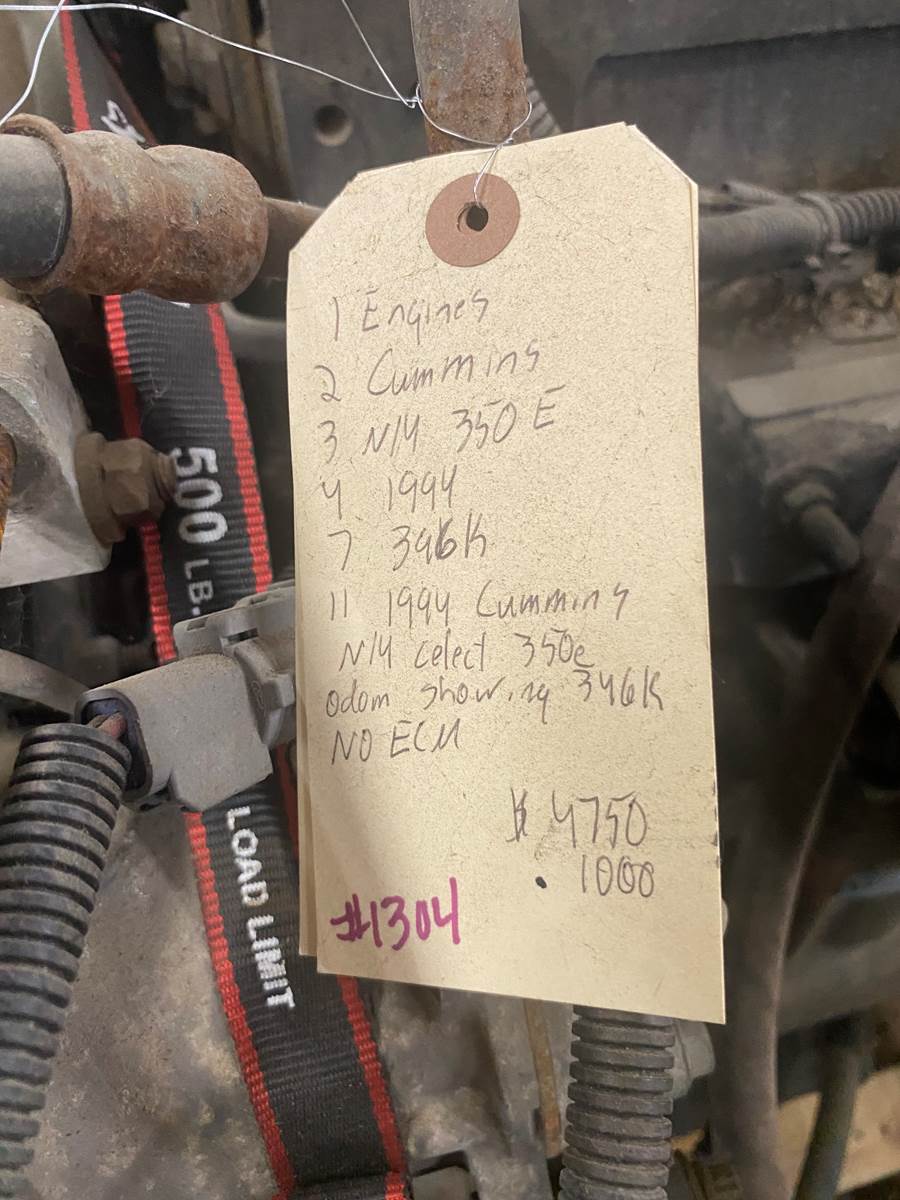 1 Engines
2 Cummins
3 N14 350 E
4 1994
7 346K
11 1994 Cummins
N14 celect 350e
odom showing 346K
NO ECM
$ 4750
1000
#1304
500 LB.
LOAD LIMIT